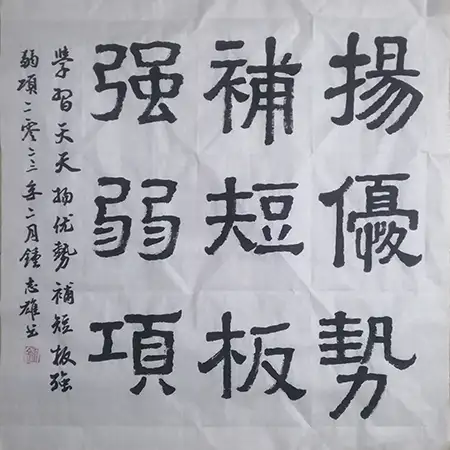 揚優勢
補短板
强弱項
學習天天揚优勢補短板强
弱項二零二三年二月鍾志雄书